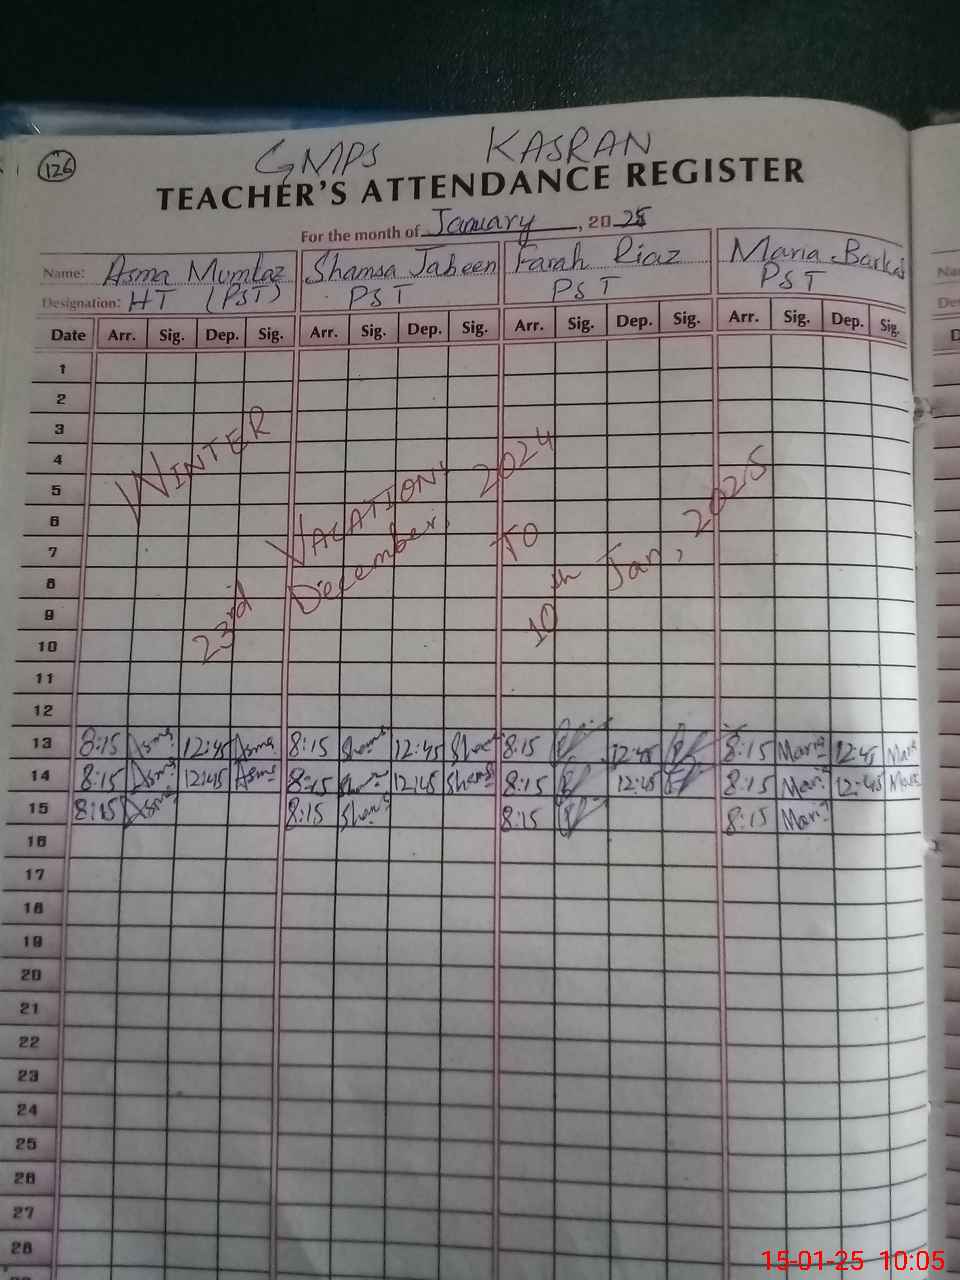 126
GMPS KASRAN
TEACHER'S ATTENDANCE REGISTER
For the month of January, 2025
Name: Asma Mumtaz Shamsa Jabeen Farah Riaz Maria Barkat
Designation: HT (PST) PST PST PST
Date Arr. Sig. Dep. Sig. Arr. Sig. Dep. Sig. Arr. Sig. Dep. Sig. Arr. Sig. Dep. Sig.
1
2
3
4
5
6
7
8
9
10
11
12
WINTER VACATIONS
23rd December, 2024 TO 10th Jan, 2025
13 8:15 Asma 12:45 Asma 8:15 Shams 12:45 Sha 8:15 12:45 8:15 Maria 12:45 Maria
14 8:15 Asma 12:45 Asma 8:15 Sham 12:45 Shams 8:15 12:45 8:15 Maria 12:45 Maria
15 8:15 Asma 8:15 Shams 8:15 8:15 Maria
16
17
18
19
20
21
22
23
24
25
26
27
28
15-01-25 10:05